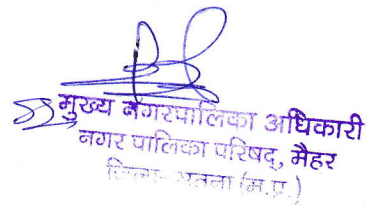 मुख्य नगरपालिका अधिकारी
नगर पालिका परिषद्, मैहर
जिला- सतना (म.प्र.)